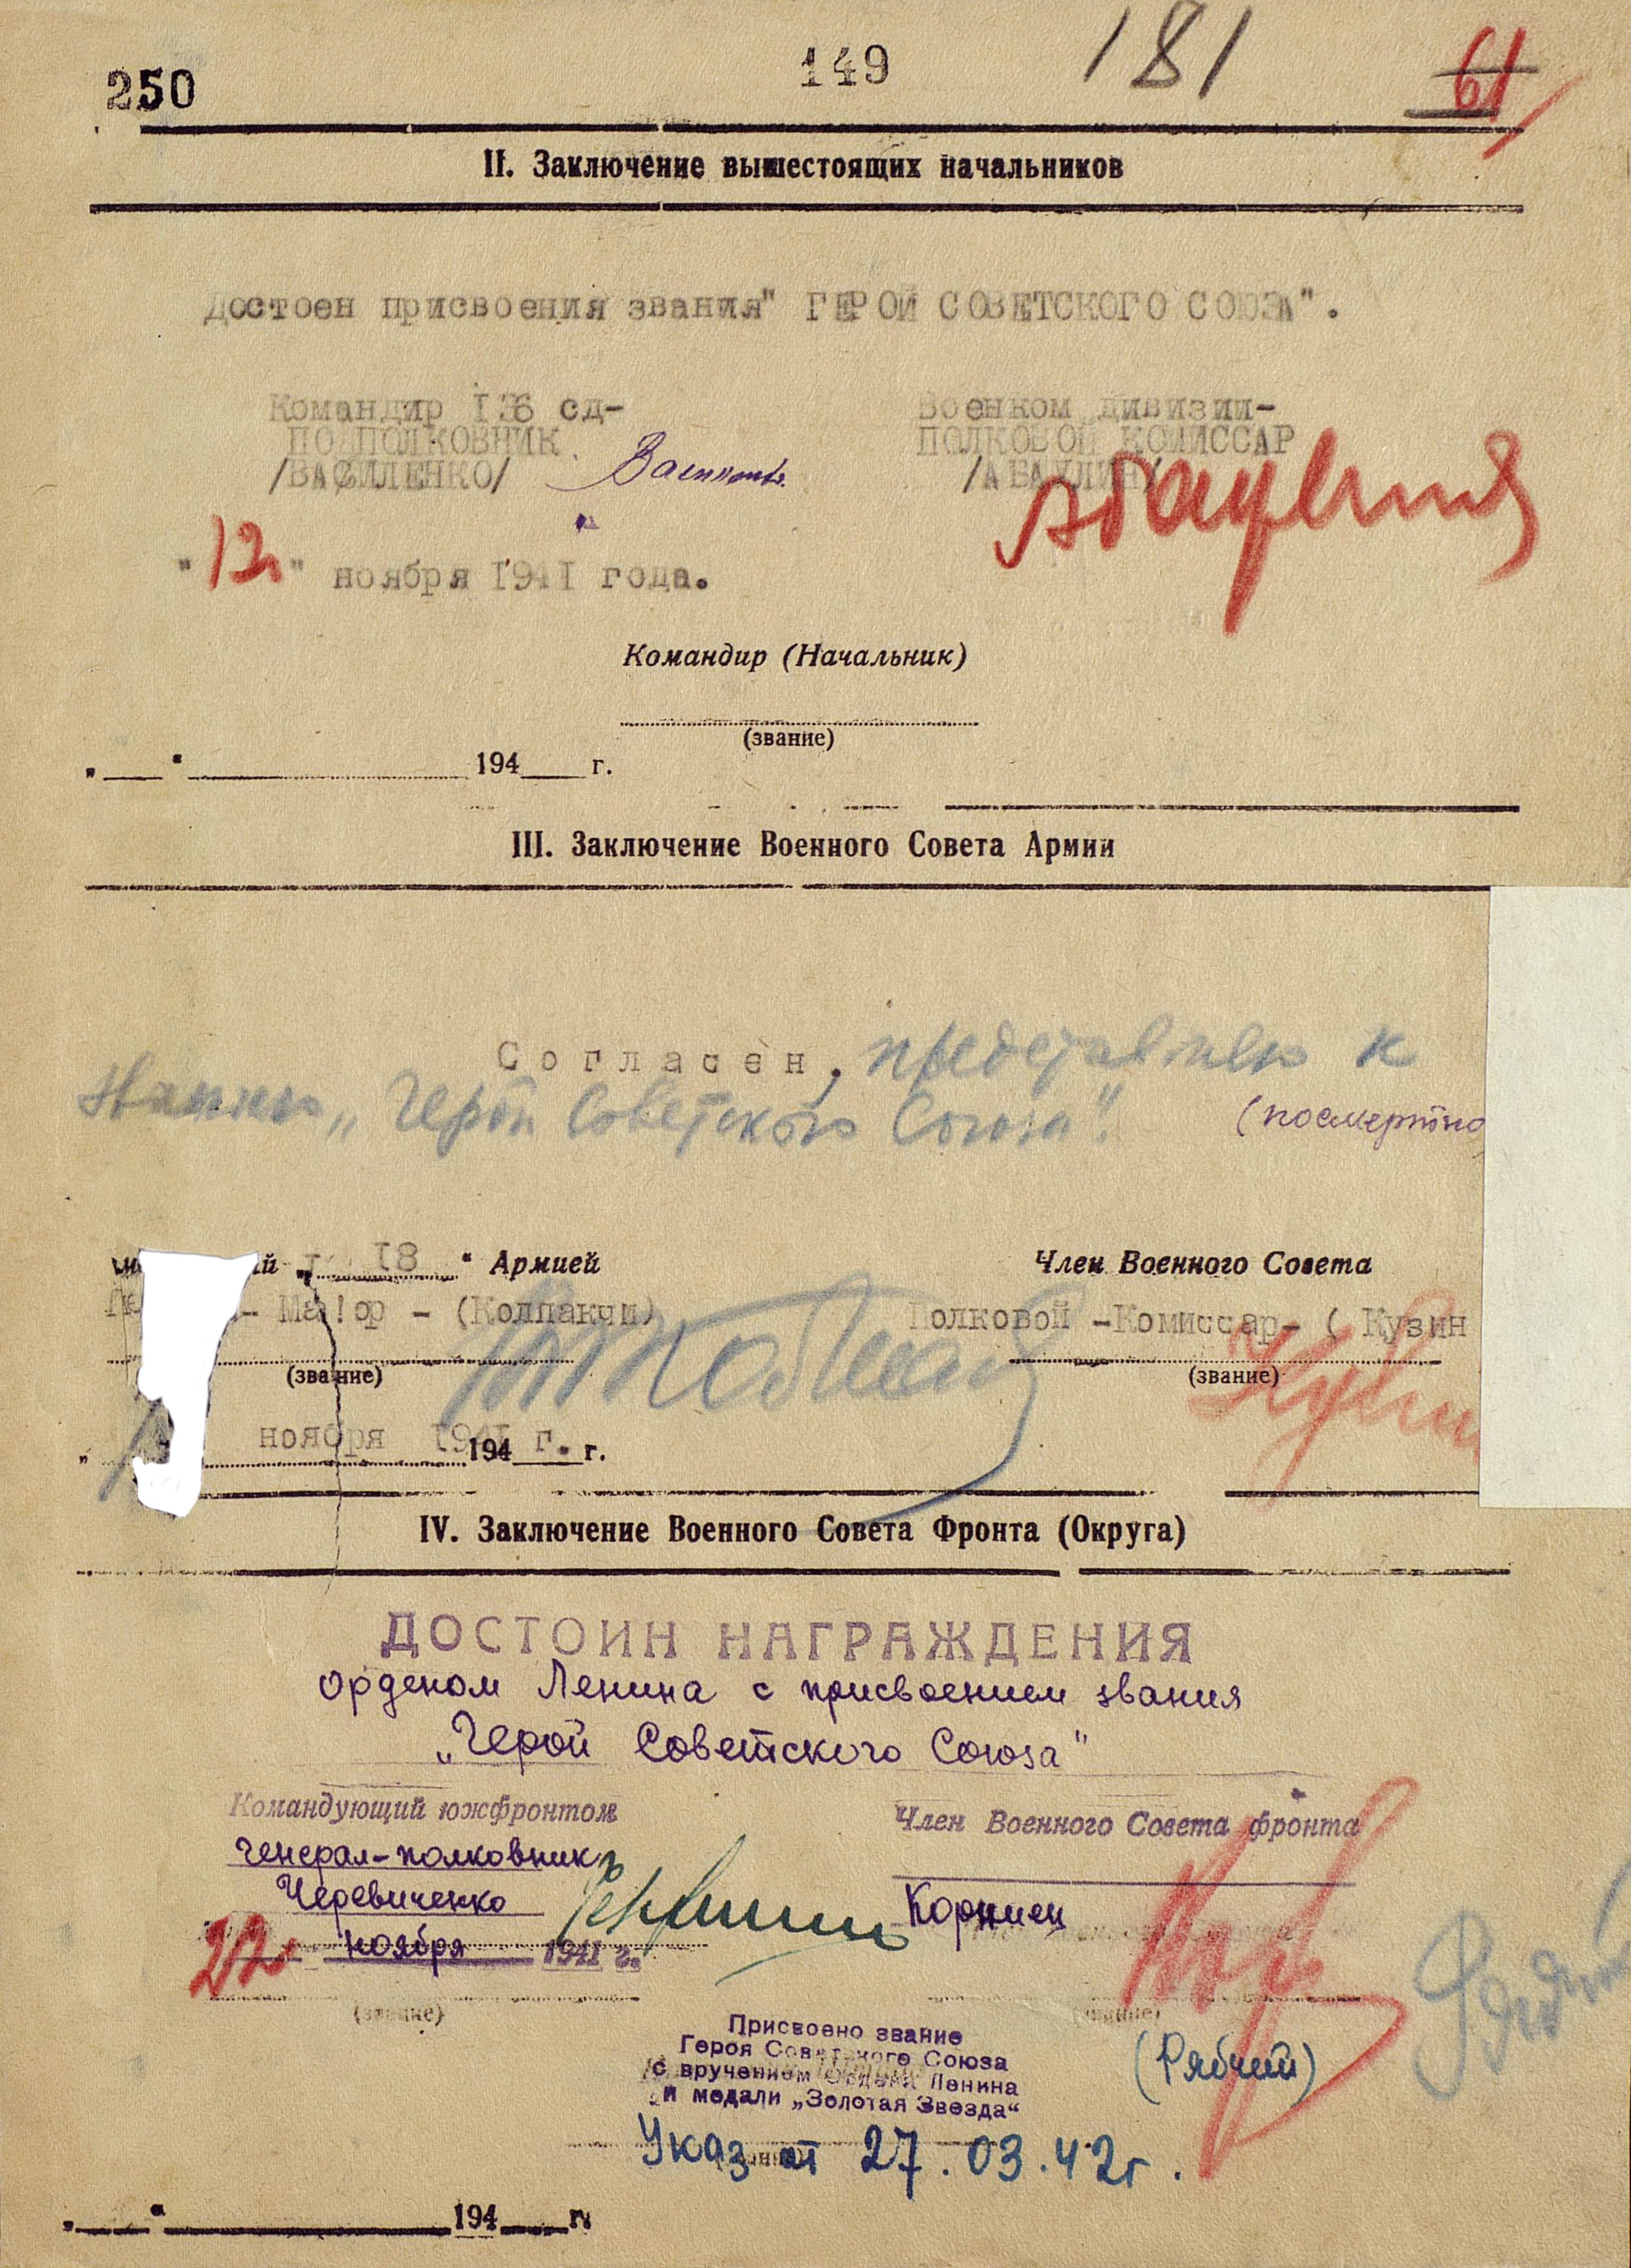 250
149
181
61
II. Заключение вышестоящих начальников
Достоен присвоения звания" ГЕРОЙ СОВЕТСКОГО СОЮЗА".
Командир 136 сд-
ПОДПОЛКОВНИК
/ВАСИЛЕНКО/
Военком дивизии-
ПОЛКОВОЙ КОМИССАР
/АБАУЛИН/
"12" ноября 1941 года.
Командир (Начальник)
(звание)
„ “ 194 г.
III. Заключение Военного Совета Армии
Согласен, представляю к
званию „Герой Советского Союза".
(посмертно
й „ 18 “ Армией
- Май!ор - (Колпакчи)
(звание)
Член Военного Совета
Полковой -Комиссар- ( Кузин
(звание)
„ ноября 1941 г. 194 г.
IV. Заключение Военного Совета Фронта (Округа)
ДОСТОИН НАГРАЖДЕНИЯ
орденом Ленина с присвоением звания
„Герой Советского Союза"
Командующий южфронтом
генерал-полковник
Черевиченко
22 ноября 1941 г.
(звание)
Член Военного Совета фронта
Корниец
(звание)
(Рябчий)
Присвоено звание
Героя Советского Союза
с вручением Ордена Ленина
и медали „Золотая Звезда“
Указ от 27.03.42г.
„ “ 194 г.